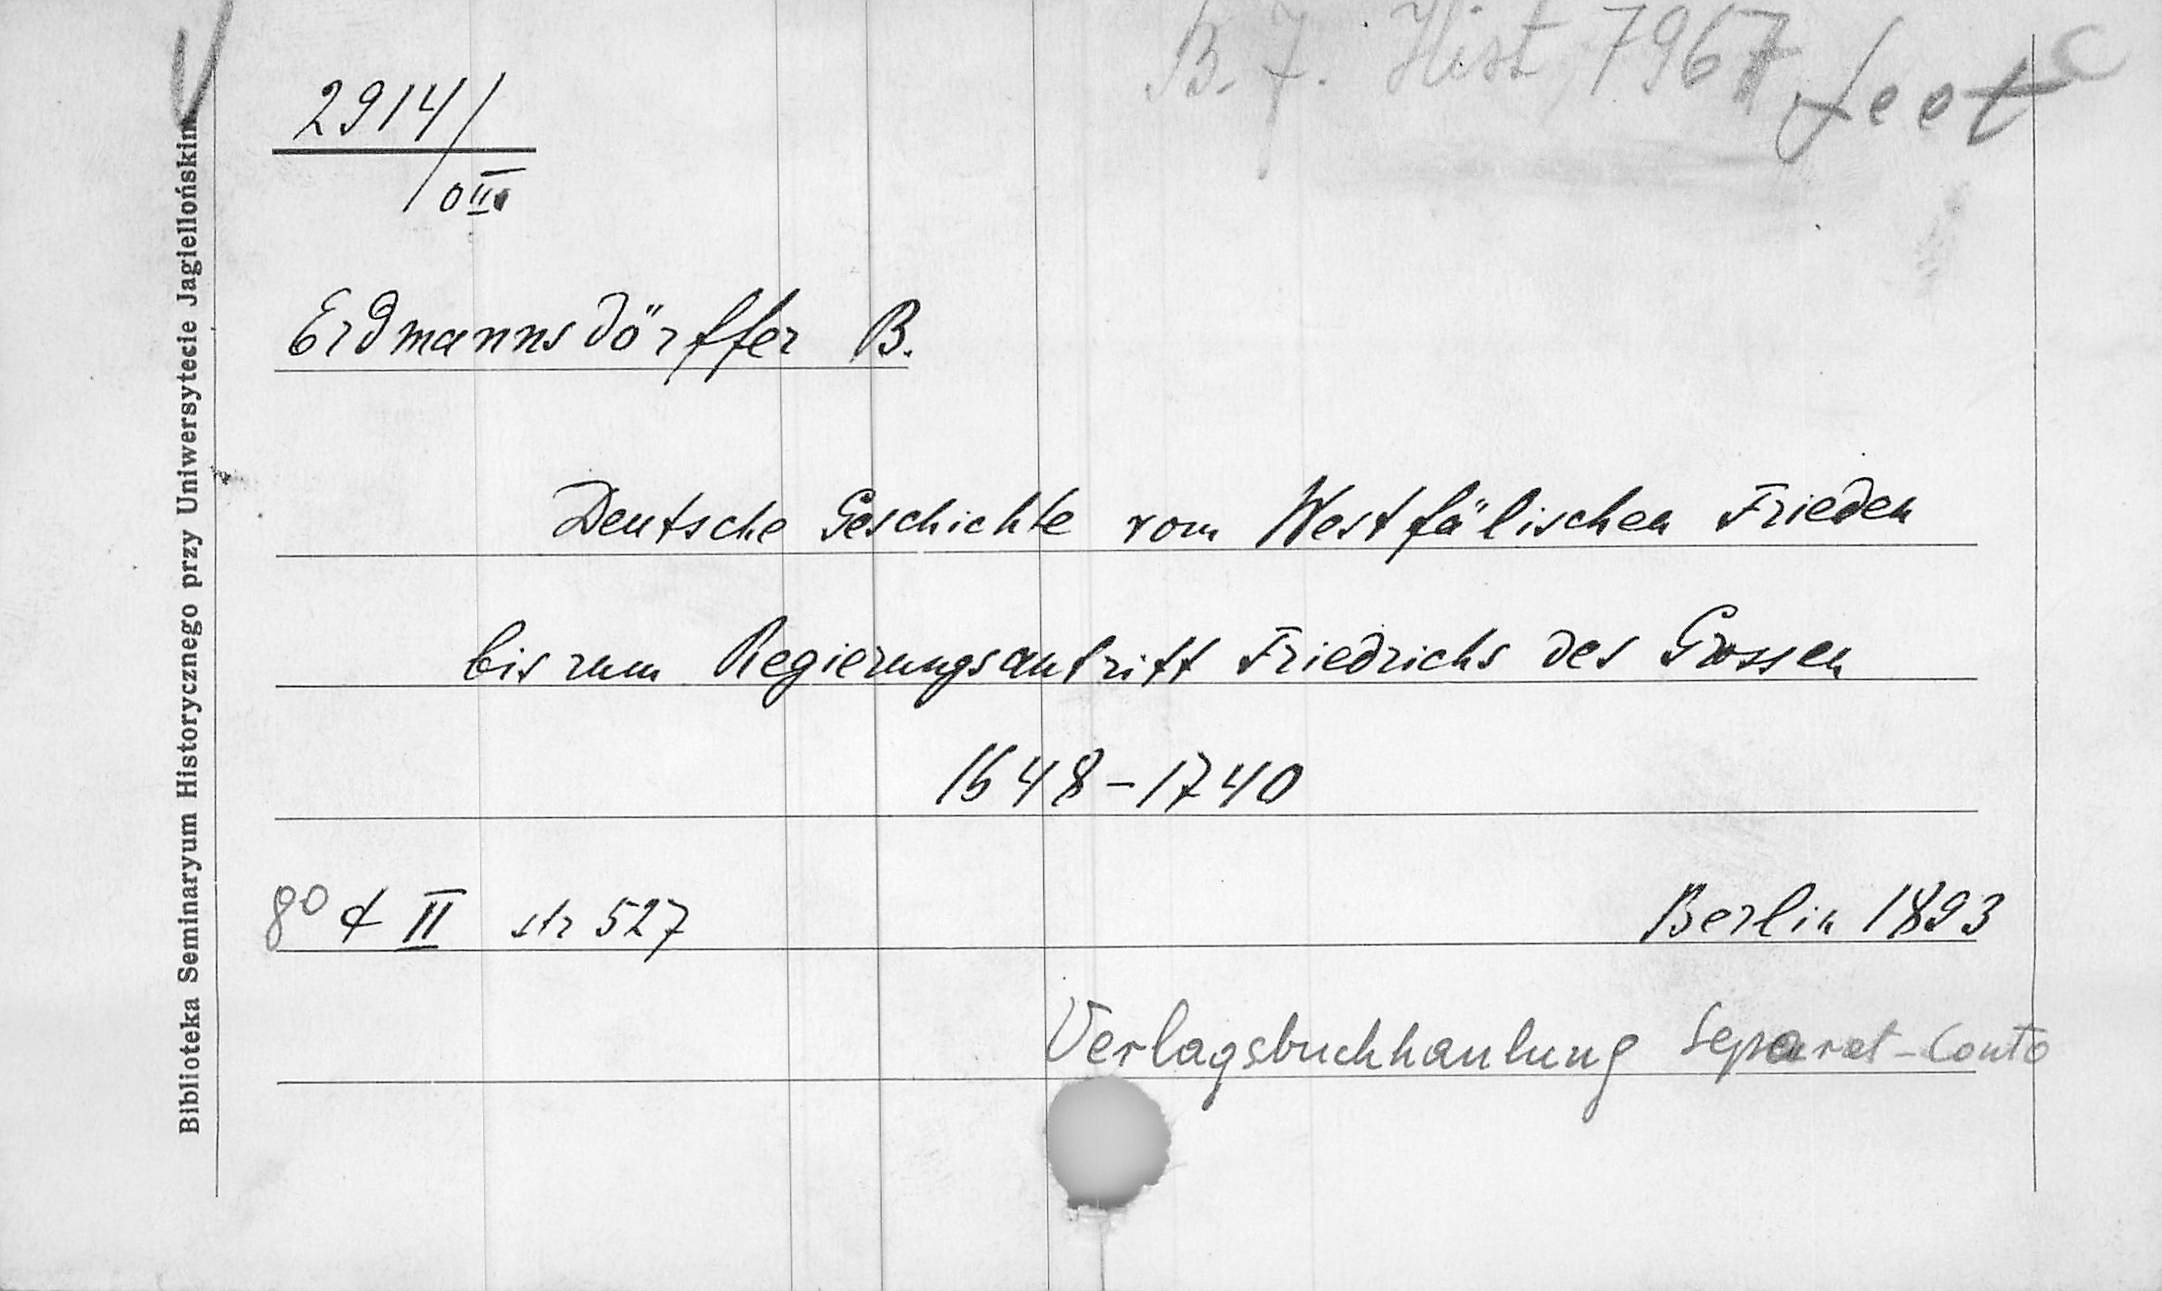 B. J. Hist. 7967
2914/
0 II
Erdmannsdörffer B.
Deutsche Geschichte vom Westfälischen Frieden
bis zum Regierungsantritt Friedrichs des Grossen
1648-1740
8° t II str 527 Berlin 1893
Verlagsbuchhanlung Separat-Conto
Biblioteka Seminaryum Historycznego przy Uniwersytecie Jagiellońskim